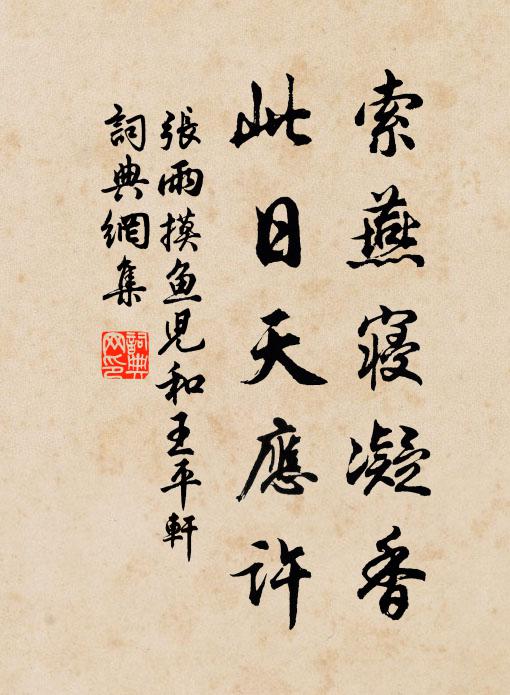 索燕寢凝香
此日天應許
張雨摸魚兒和王平軒
詞典網集
詞典網印